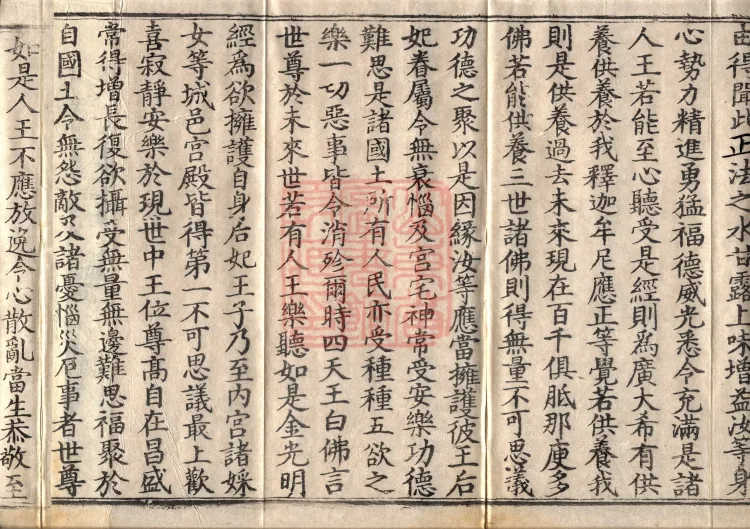 由得聞此正法之水甘露上味增益汝等身
心勢力精進勇猛福德威光悉令充滿是諸
人王若能至心聽受是經則為廣大希有供
養供養於我釋迦牟尼應正等覺若供養我
則是供養過去未來現在百千俱胝那庾多
佛若能供養三世諸佛則得無量不可思議
功德之聚以是因緣汝等應當擁護彼王后
妃眷屬令無衰惱及宮宅神常受安樂功德
難思是諸國土所有人民亦受種種五欲之
樂一切惡事皆令消殄爾時四天王白佛言
世尊於未來世若有人王樂聽如是金光明
經為欲擁護自身后妃王子乃至內宮諸婇
女等城邑宮殿皆得第一不可思議最上歡
喜寂靜安樂於現世中王位尊高自在昌盛
常得增長復欲攝受無量無邊難思福聚於
自國土令無怨敵及諸憂惱災厄事者世尊
如是人王不應放逸令心散亂當生恭敬至